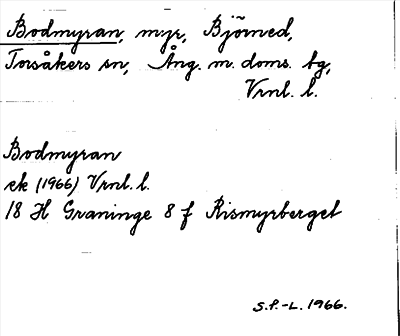 Bodmyran, myr, Björned,
Torsåkers sn, Ång. m. doms. tg,
Vrnl. l.
Bodmyran
ek (1966) Vrnl. l.
18 H Graninge 8 f Rismyrberget
S.P.-L. 1966.